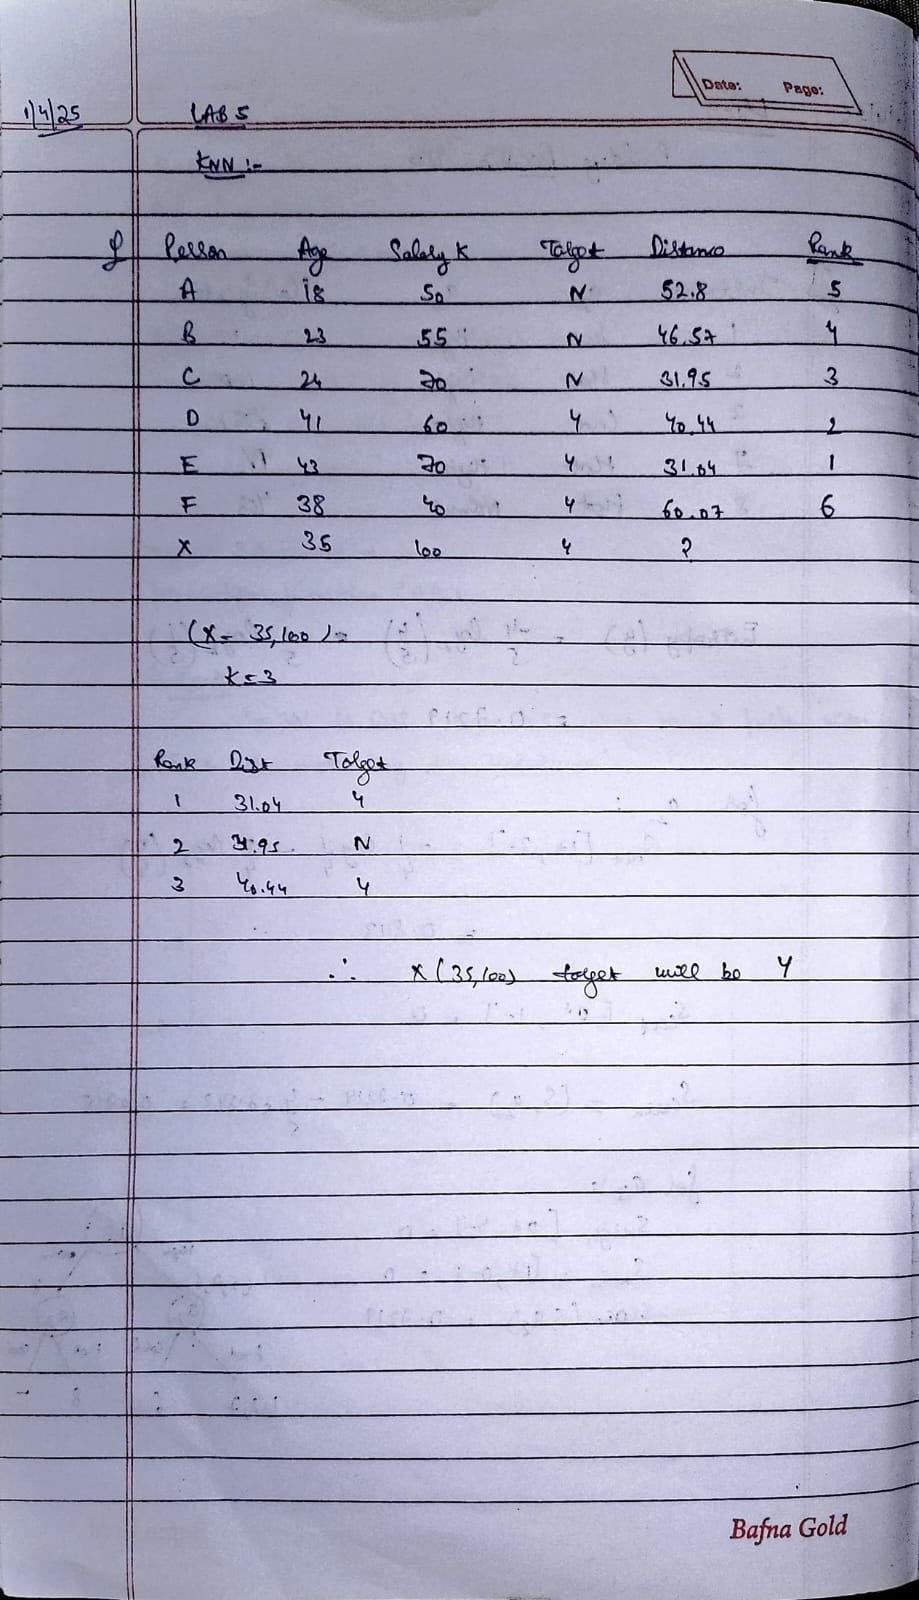 Date: Page:
1/4/25 LAB 5
KNN :-
Person Age Salary K Target Distance Rank
A 18 50 N 52.8 5
B 23 55 N 46.57 4
C 24 70 N 31.95 3
D 41 60 Y 40.44 2
E 43 70 Y 31.04 1
F 38 40 Y 60.07 6
X 35 100 Y ?
(X = 35,100) =
K = 3
Rank Dist Target
1 31.04 Y
2 31.95 N
3 40.44 Y
∴ X (35,100) target will be Y
Bafna Gold